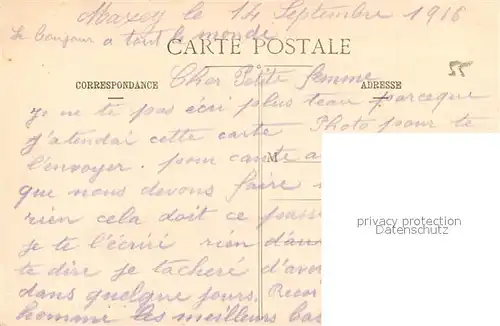 Maxey le 14 Septembre 1916
Le bonjour a tout le monde
CARTE POSTALE
CORRESPONDANCE
ADRESSE
Cher Petite femme
je ne te pas écri plus teau parceque
j'atendai cette carte Photo pour te
l'envoyer. pour cante a
M
que nous devons faire
rien cela doit ce passé
je te l'écriré rien d'au
te dire je tacheré d'avoi
dans quelque jours. Recoi
homme les meilleurs bas
privacy protection
Datenschutz